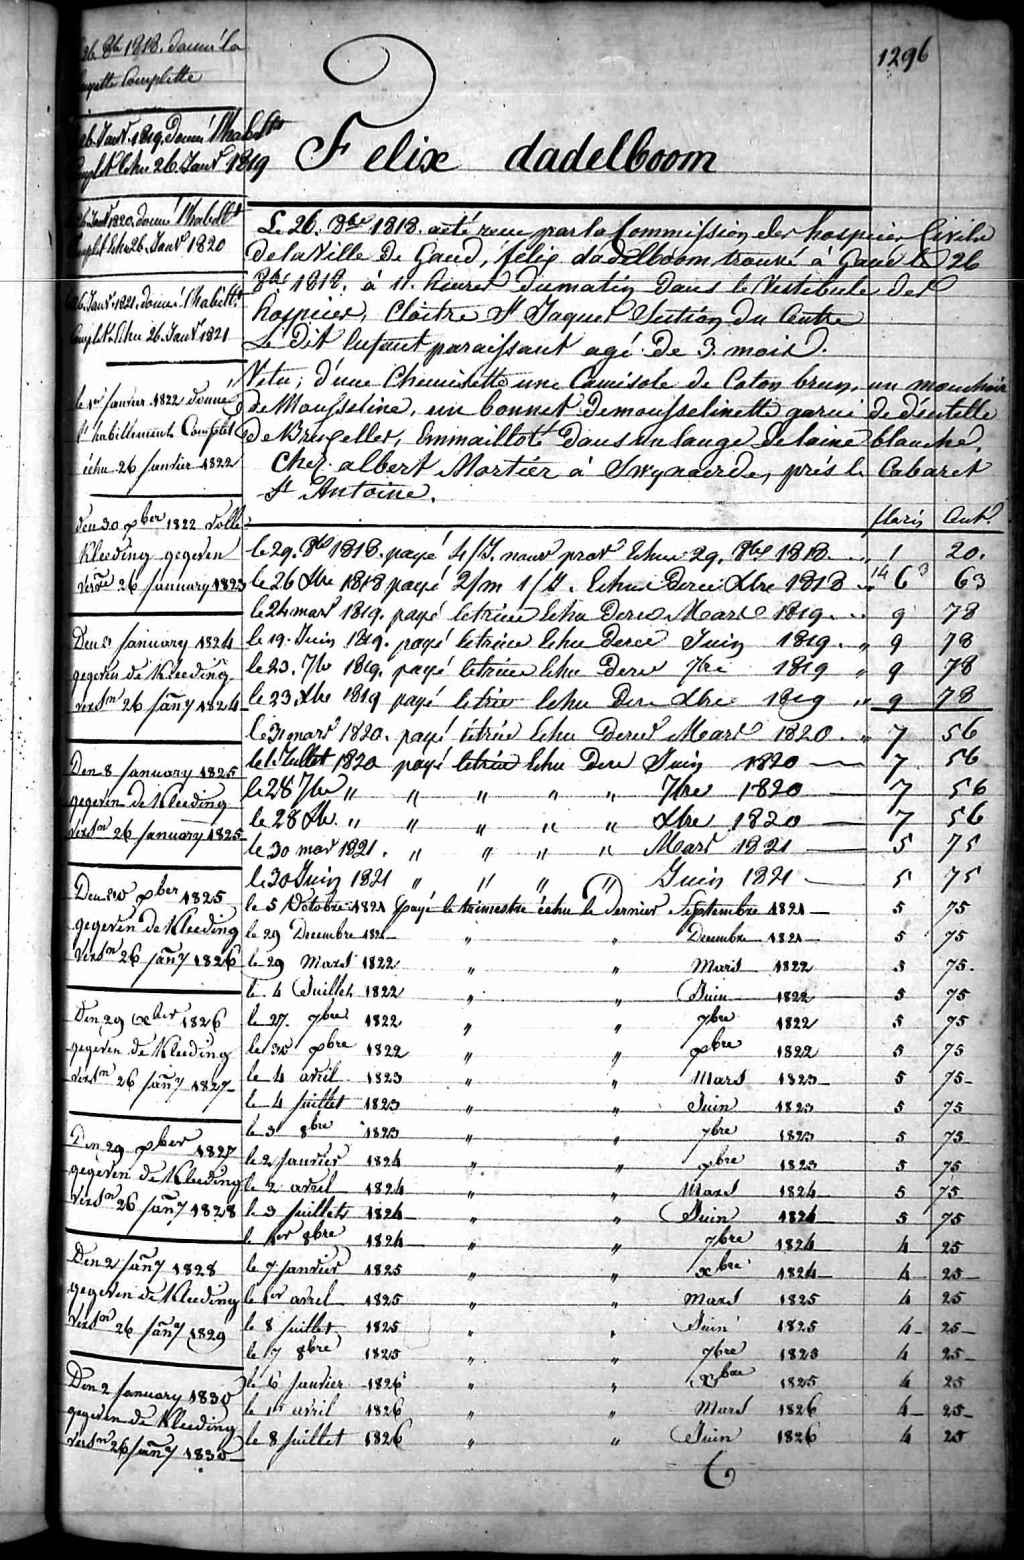 1296
26 8bre 1818. donné la
layette Complette
26. Janvr. 1819, donné l'habillt
Complet Echu 26. Janvr 1819
26. Janvr 1820. donné l'habillt
Complet Echu 26. Janvr 1820
26. Janvr. 1821. donné l'habillt
Complet Echu 26. Janvr 1821
le 1er janvier 1822 donné
l'habillement Complet
échu 26 janvier 1822
den 30 xber 1822 volle
Kleeding gegeven
verse 26 january 1823
Den 8 january 1824
gegeven de Kleeding
versn 26 jany 1824
Den 8 january 1825
gegeven de Kleeding
versn 26 january 1825
Den 30 xber 1825
gegeven de Kleeding
versn 26 jany 1826
Den 29 xber 1826
gegeven de Kleeding
versn 26 jany 1827
Den 29 xber 1827
gegeven de Kleeding
versn 26 jany 1828
Den 2 jany 1828
gegeven de Kleeding
versn 26 jany 1829
Den 2 january 1830
gegeven de Kleeding
versn 26 jany 1830
Felix dadelboom
Le 26. 8bre 1818. a été reçu par la Commission des hospices Civils
de la Ville de Gand, felix dadelboom trouvé à Gand le 26
8bre 1818. à 11. heures du matin dans le Vestibule des
hospices, Cloître St Jaques Section du Centre
Le Dit Enfant paraissant agé de 3. mois.
Vetu, d'une Chemisette une Camisole de Coton brun, un mouchoir
de Mousseline, un bonnet de mousselinette garni de dentelle
de Bruxelles, Emmailloté dans un lange de laine blanche.
Chez albert Mortier à Swynaerde, près le Cabaret
St Antoine.
floris Cent.
le 29. 8bre 1818. payé 4/S. nour prov Echu 29. 8bre 1818. " 1 20.
le 26 Xbre 1818 payé 2/m 1/S. Echu Derer Xbre 1818 " 14 6 3 63
le 24 mars 1819. payé letrice Echu Derer Mars 1819. " 9 78
le 19. Juin 1819. payé letrice Echu Derer Juin 1819. " 9 78
le 23. 7bre 1819. payé letrice Echu Derer 7bre 1819 " 9 78
le 23 Xbre 1819 payé letrice Echu Derer Xbre 1819 " 9 78
le 31 mars 1820. payé letrice Echu Derer Mars 1820. " 7 56
le 1 Juillet 1820 payé letrice Echu Derer Juin 1820 — 7 56
le 28 7bre " " " " " 7bre 1820 — 7 56
le 28 Xbre " " " " " Xbre 1820 — 7 56
le 30 mars 1821. " " " " Mars 1821 — 5 75
le 30 Juin 1821 " " " " Juin 1821 — 5 75
le 5 Octobre 1821 payé le trimestre échu le dernier Septembre 1821 — 5 75
le 29 Decembre 1821 " " Decembre 1821 — 5 75
le 29 Mars 1822 " " Mars 1822 5 75.
le 4 Juillet 1822 " " Juin 1822 5 75
le 27. 7bre 1822 " " 7bre 1822 5 75
le 30 xbre 1822 " " xbre 1822 5 75
le 4 avril 1823 " " Mars 1823 — 5 75 —
le 4 juillet 1823 " " Juin 1823 5 75
le 3 8bre 1823 " " 7bre 1823 5 75
le 2 janvier 1824 " " xbre 1823 5 75
le 2 avril 1824 " " Mars 1824 — 5 75
le 3 juillet 1824 " " Juin 1824 5 75
le 1er 8bre 1824 " " 7bre 1824 4 25
le 7 janvier 1825 " " xbre 1824 — 4 25 —
le 1er avril 1825 " " Mars 1825 4 25
le 8 juillet 1825 " " Juin 1825 4 — 25 —
le 7 8bre 1825 " " 7bre 1825 4 25 —
le 6 janvier 1826 " " Xbre 1825 4 25
le 1er avril 1826 " " Mars 1826 4 — 25 —
le 8 juillet 1826 " " Juin 1826 4 25